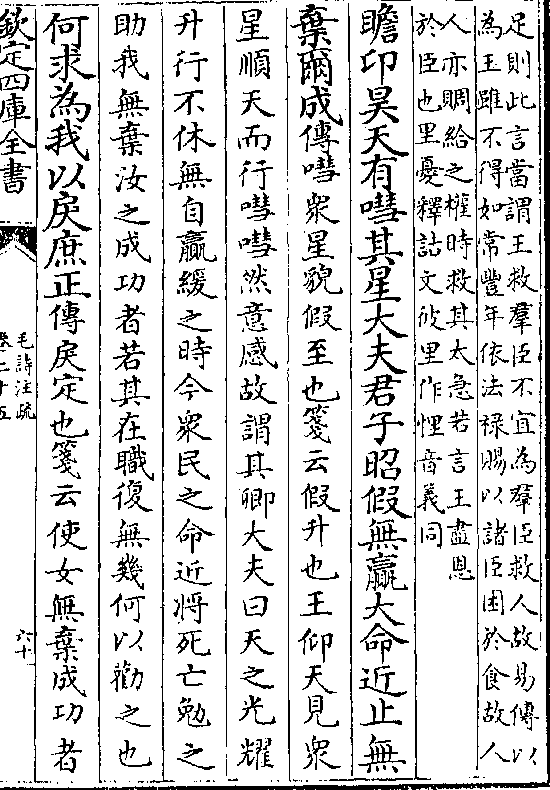 足則此言當謂王救羣臣不宜為羣臣救人故易傳以
為玉雖不得如常豐年依法祿賜以諸臣困於食故人
人亦賙給之權時救其太急若言王盡恩
於臣也里憂釋詁文彼里作悝音義同
瞻卬昊天有嘒其星大夫君子昭假無贏大命近止無
棄爾成傳嘒衆星貌假至也箋云假升也王仰天見衆
星順天而行嘒嘒然意感故謂其卿大夫曰天之光耀
升行不休無自贏緩之時今衆民之命近將死亡勉之
助我無棄汝之成功者若其在職復無幾何以勸之也
何求為我以戾庶正傳戾定也箋云使女無棄成功者
欽定四庫全書
毛詩注疏
卷二十五
六十